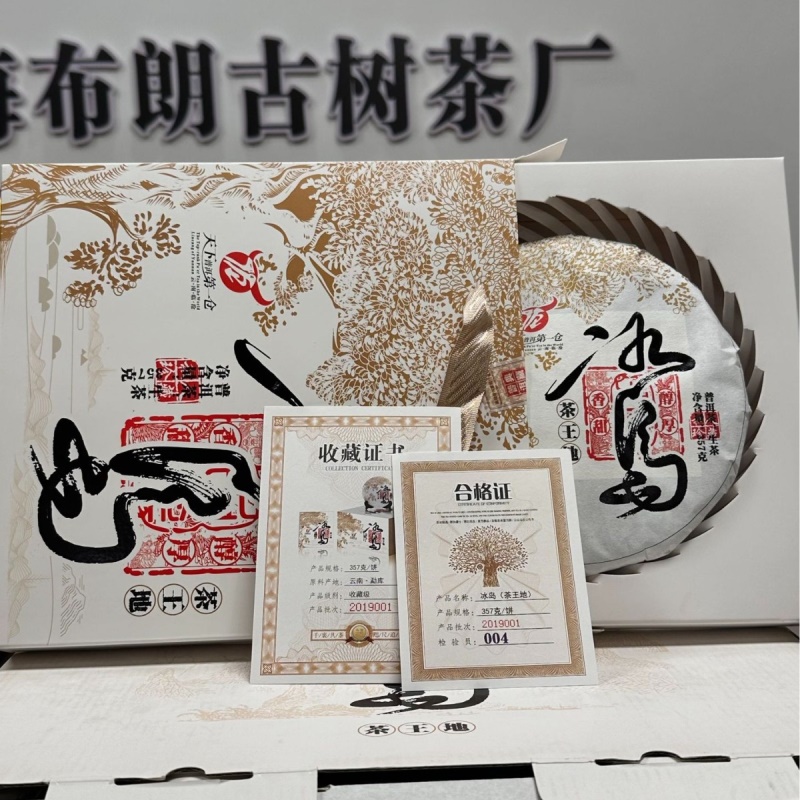 布朗古树茶厂
天下普洱第一仓
The Top Grade Pu'er Tea in the World
Lincang of Yunnan 云·南·临·沧
普洱茶 生茶
净含量:357克
茶王地
普洱第一仓
冰岛
香甜
醇厚
茶王地
普洱茶 生茶
净含量:357克
收藏证书
COLLECTION CERTIFICATE
冰岛
产品规格: 357克/饼
原料产地: 云南·勐库
产品级别: 收藏级
产品批次: 2019001
合格证
CERTIFICATE OF CONFORMITY
产品名称: 冰岛（茶王地）
产品规格: 357克/饼
产品批次: 2019001
检验员: 004
岛
茶王地